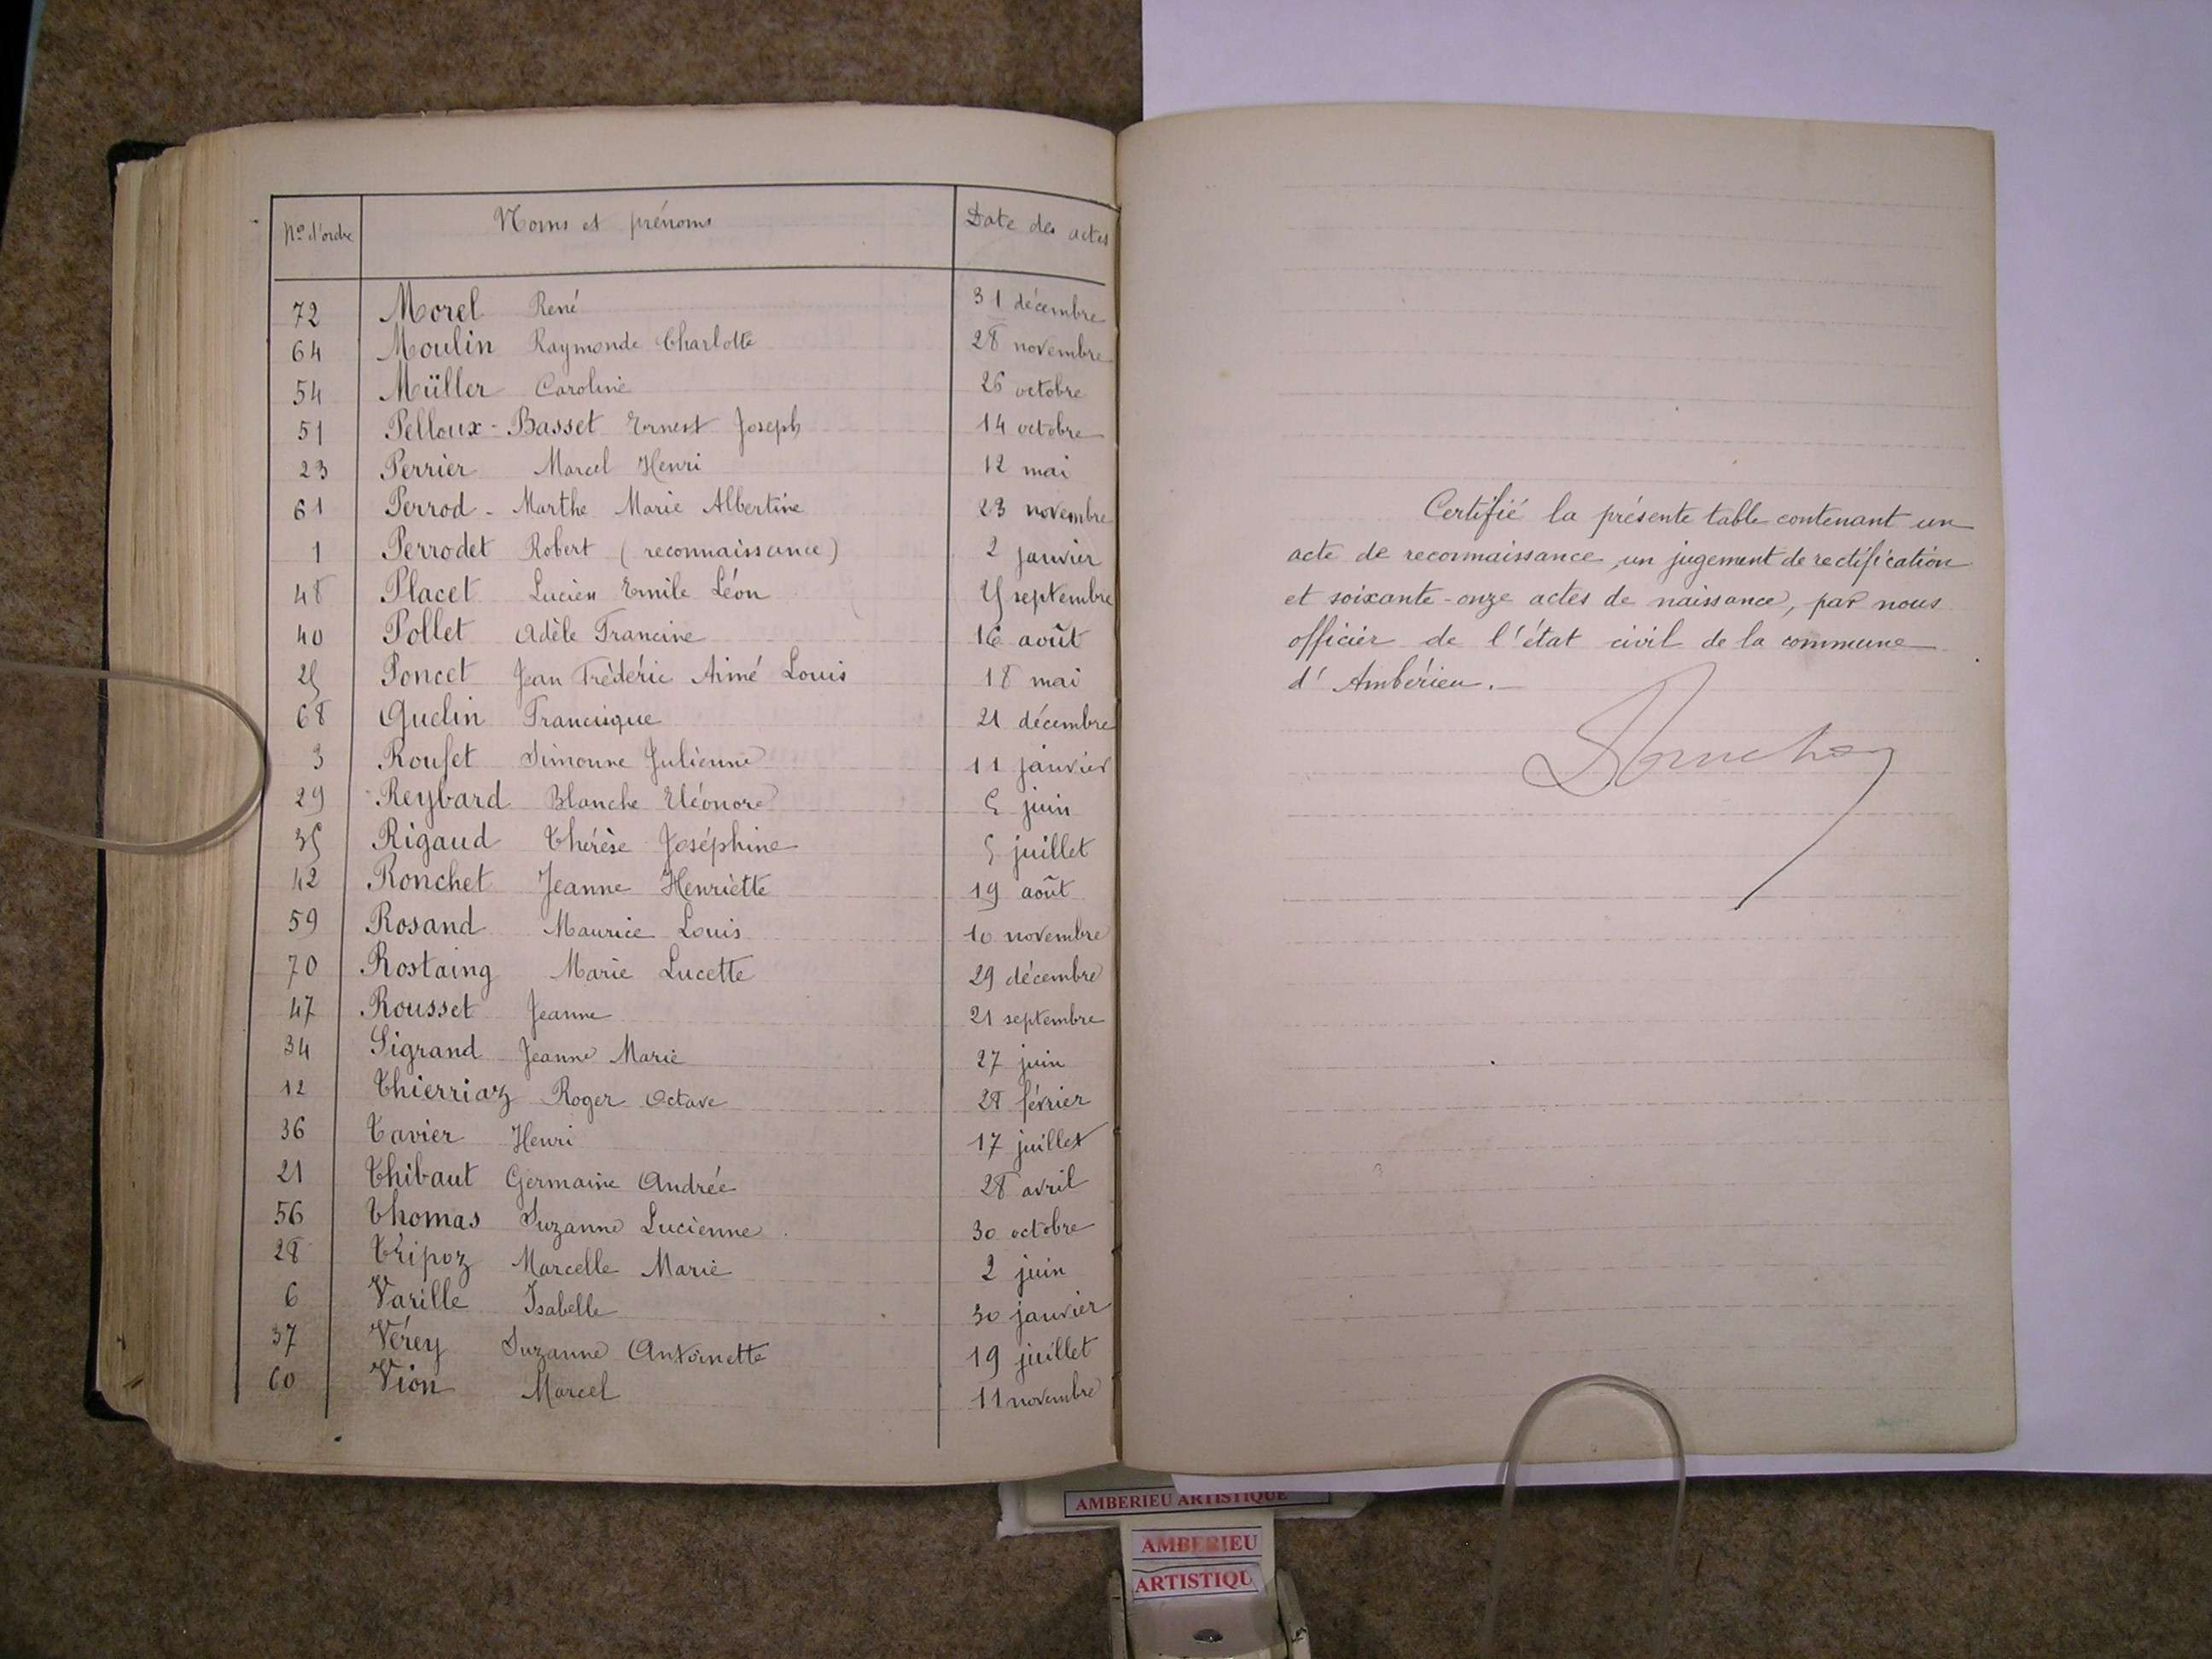 Nº d'ordre Noms et prénoms Date des actes
72 Morel René 31 décembre
64 Moulin Raymonde Charlotte 28 novembre
54 Müller Caroline 26 octobre
51 Pelloux-Basset Ernest Joseph 14 octobre
23 Perrier Marcel Henri 12 mai
61 Perrod - Marthe Marie Albertine 23 novembre
1 Perrodet Robert (reconnaissance) 2 janvier
48 Placet Lucien Emile Léon septembre
40 Pollet Adèle Francine 16 août
25 Poncet Jean Frédéric Aimé Louis 18 mai
68 Quclin Francisque 21 décembre
3 Simonne Julienne 11 janvier
29 Reybard Blanche Eléonore 5 juin
35 Rigaud Thérèse Joséphine 5 juillet
42 Ronchet Jeanne Henriette 19 août
59 Rosand Maurice Louis 10 novembre
70 Rostaing Marie Lucette 29 décembre
47 Rousset Jeanne 21 septembre
34 Sigrand Jeanne Marie 27 juin
12 Thierriaz Roger Octave 28 février
36 Tavier Henri 17 juillet
21 Thibaut Germaine Andrée 28 avril
56 Thomas Suzanne Lucienne 30 octobre
28 Tripoz Marcelle Marie 2 juin
6 Varille Isabelle 30 janvier
37 Vérey Suzanne Antoinette 19 juillet
60 Vion Marcel 11 novembre
Certifié la présente table contenant un
acte de reconnaissance, un jugement de rectification
et soixante-onze actes de naissance, par nous
officier de l'état civil de la commune
d'Ambérieu.
AMBERIEU ARTISTIQUE
AMBERIEU
ARTISTIQU